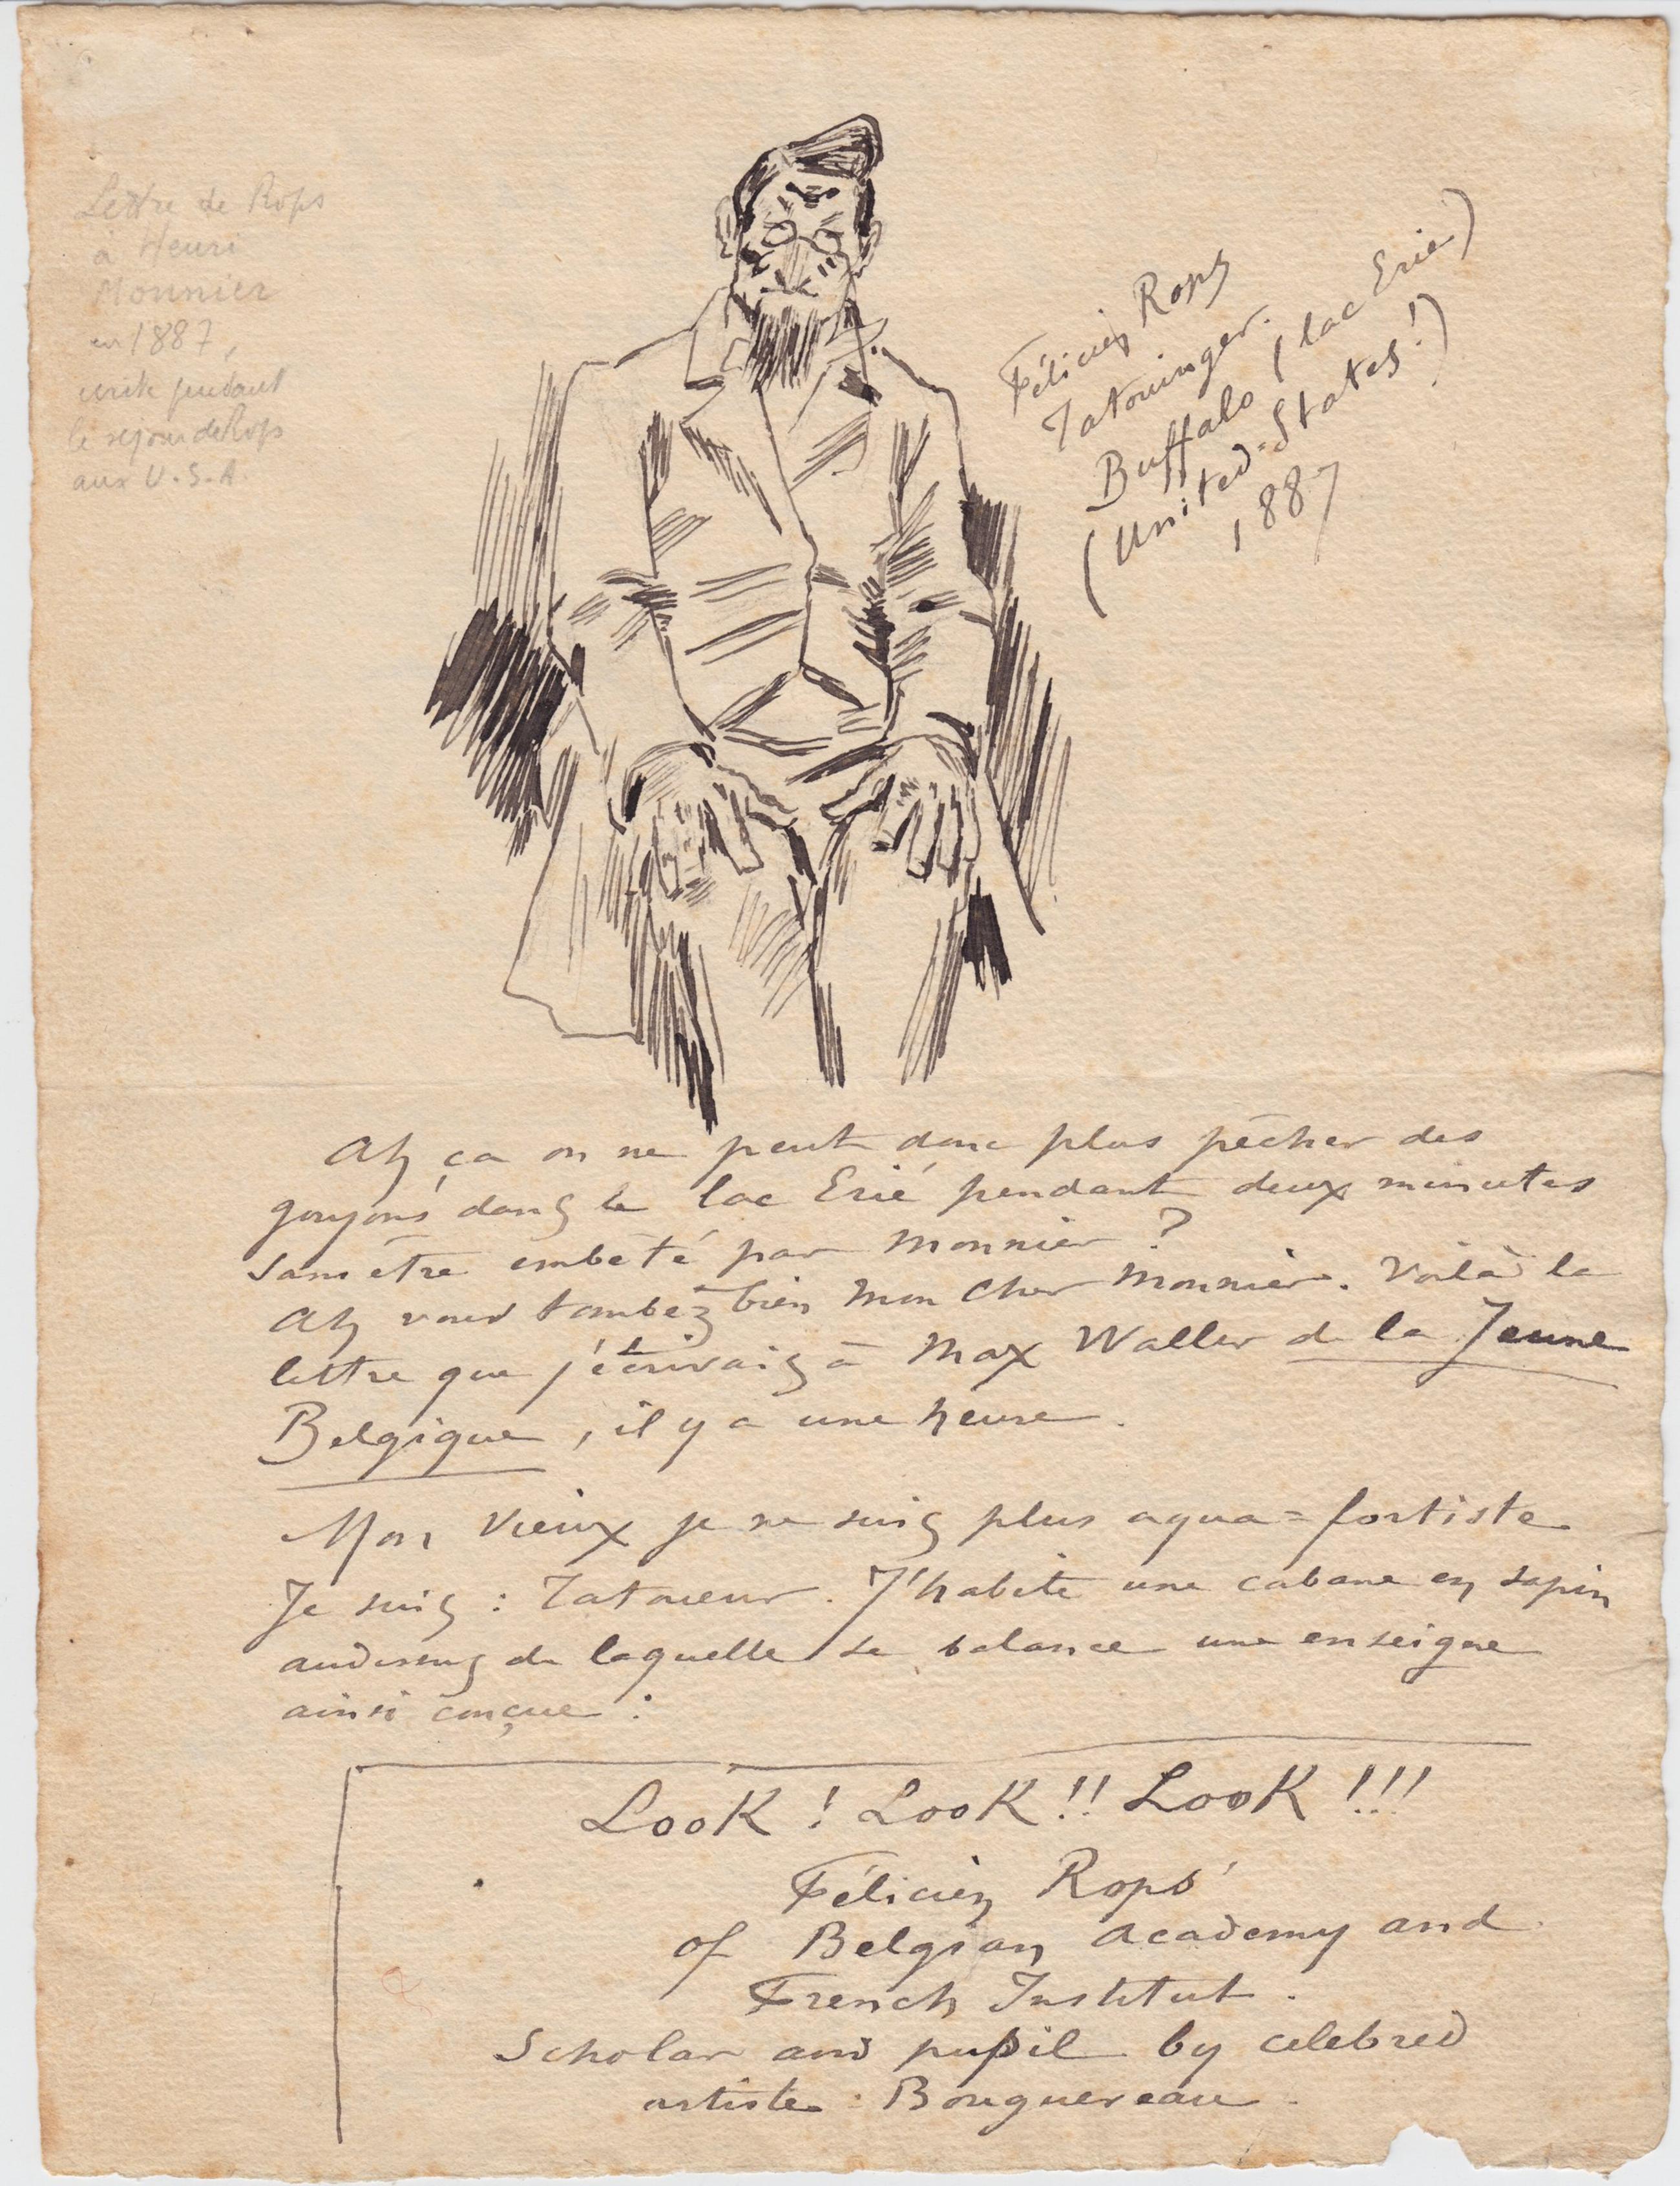 Lettre de Rops
à Henri
Monnier
en 1887,
écrite pendant
le séjour de Rops
aux U.S.A.
Félicien Rops
Tatouinger.
Buffalo (lac Erie)
(United=States!)
1887
Ah ça on ne peut donc plus pêcher des
goujons dans le lac Erié pendant deux minutes
sans être embêté par Monnier ?
Ah vous tombez bien mon Cher Monnier. Voilà la
lettre que j'écrivais à Max Waller de la Jeune
Belgique, il y a une heure.
Mon Vieux je ne suis plus aqua=fortiste
Je suis : Tatoueur. J'habite une cabane en sapin
audessus de laquelle se balance une enseigne
ainsi conçue :
Look ! Look !! Look !!!
Félicien Rops'
of Belgian Academy and
French Institut.
Scholar and pupil by celebred
artiste : Bouguereau.